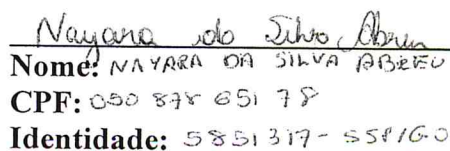 Nayara da Silva Abreu
Nome: NAYARA DA SILVA ABREU
CPF: 050 878 651 78
Identidade: 5851317-SSP/GO